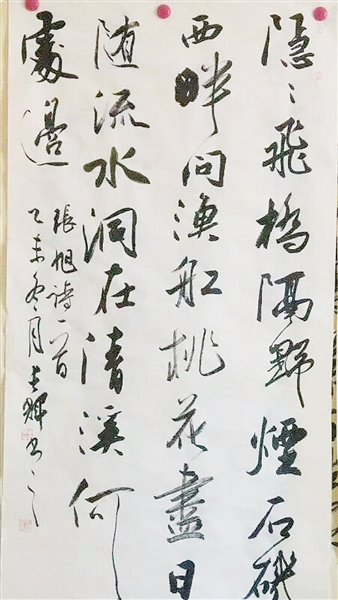 隱々飛橋隔野煙石磯
西畔問漁船桃花盡日
随流水洞在清溪何
處邊
張旭詩一首
乙未冬月